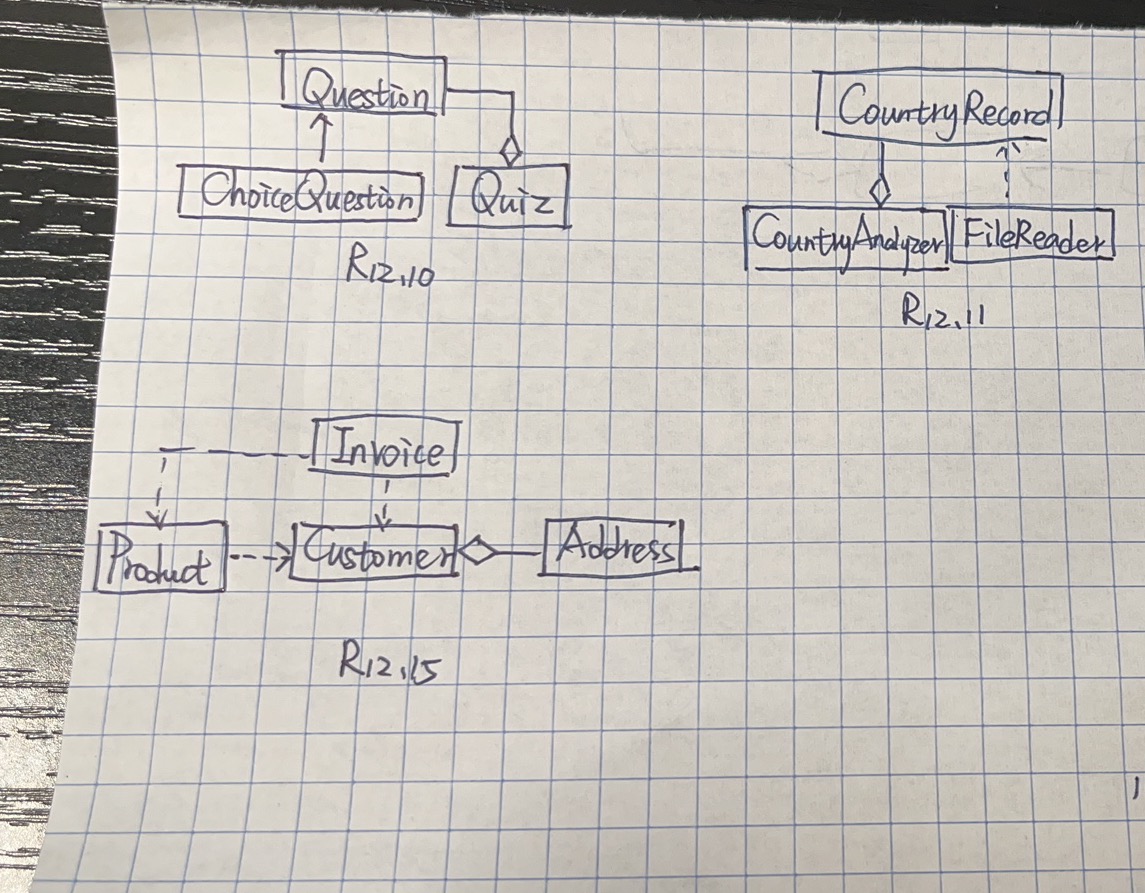 Question
ChoiceQuestion
Quiz
R12.10
CountryRecord
CountryAnalyzer
FileReader
R12.11
Invoice
Product
Customer
Address
R12.15